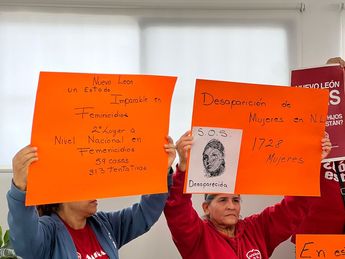 Nuevo León
un Estado
Imparable en
Feminicidios
2º Lugar a
Nivel Nacional en
Femenicidios
59 casos
313 Tentativas
Desaparición de
Mujeres en N.L
1728
Mujeres
S.O.S
Desaparecida
NUEVO LEÓN
ES
HIJOS
ESTÁN?
En es